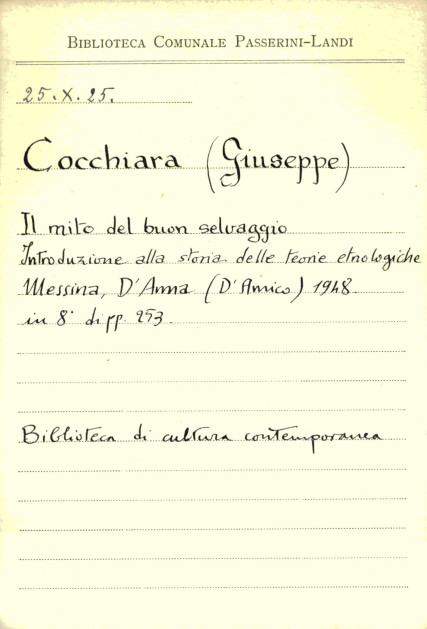 BIBLIOTECA COMUNALE PASSERINI-LANDI
25.X.25.
Cocchiara (Giuseppe)
Il mito del buon selvaggio
Introduzione alla storia delle teorie etnologiche
Messina, D'Anna (D'Amico) 1948.
in 8° di pp. 253.
Biblioteca di cultura contemporanea